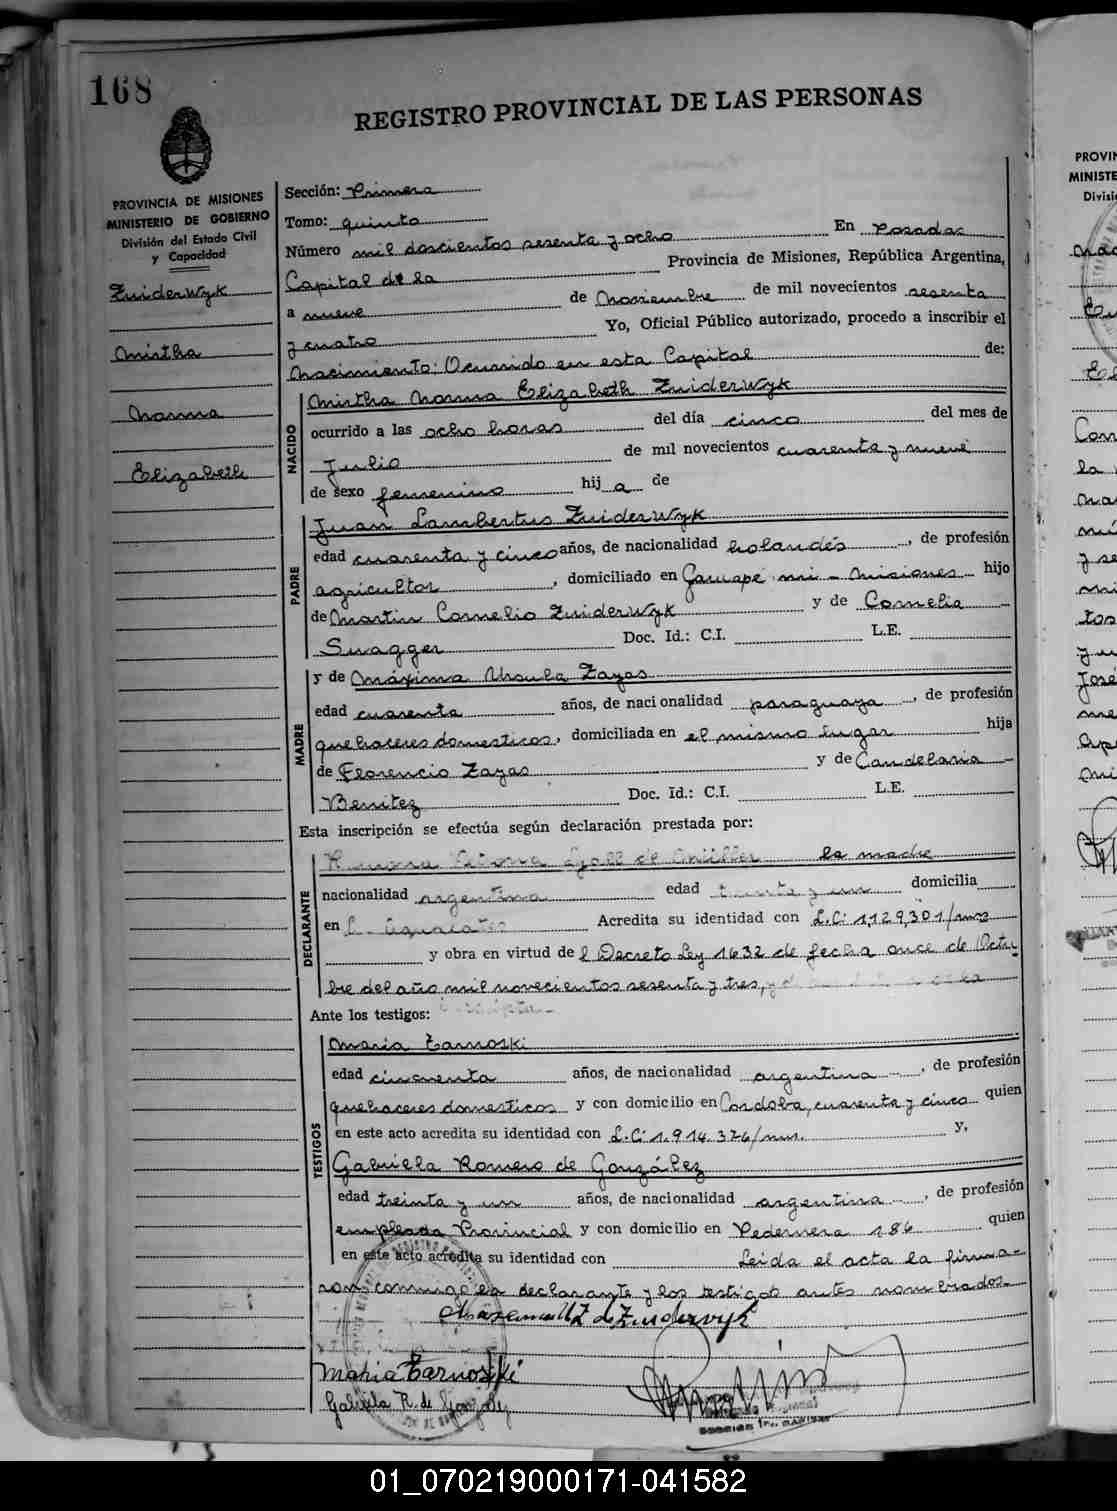 168
REGISTRO PROVINCIAL DE LAS PERSONAS
PROVINCIA DE MISIONES
MINISTERIO DE GOBIERNO
División del Estado Civil
y Capacidad
Zuiderwyk
Mirtha
Norma
Elizabeth
Sección: Primera
Tomo: quinto
Número mil doscientos sesenta y ocho En Posadas
Capital de la Provincia de Misiones, República Argentina,
a nueve de Noviembre de mil novecientos sesenta
y cuatro Yo, Oficial Público autorizado, procedo a inscribir el
Nacimiento: Ocurrido en esta Capital de:
NACIDO
Mirtha Norma Elizabeth Zuiderwyk
ocurrido a las ocho horas del día cinco del mes de
Julio de mil novecientos cuarenta y nueve
de sexo femenino hij a de
PADRE
Juan Lambertus Zuiderwyk
edad cuarenta y cinco años, de nacionalidad holandés, de profesión
agricultor, domiciliado en Garuapé mí - Misiones hijo
de Martin Cornelio Zuiderwyk y de Cornelia
Swagger Doc. Id.: C.I. L.E.
MADRE
y de Máxima Ursula Zayas
edad cuarenta años, de nacionalidad paraguaya, de profesión
quehaceres domesticos, domiciliada en el mismo lugar hija
de Florencio Zayas y de Candelaria
Benitez Doc. Id.: C.I. L.E.
Esta inscripción se efectúa según declaración prestada por:
DECLARANTE
la madre
nacionalidad argentina edad domicilia
en Acredita su identidad con L.C. 1,129,301/
y obra en virtud de l Decreto Ley 1632 de fecha once de Octu-
bre del año mil novecientos sesenta y tres,
Ante los testigos:
TESTIGOS
Maria Tarnoski
edad cincuenta años, de nacionalidad argentina, de profesión
quehaceres domesticos y con domicilio en Cordoba, cuarenta y cinco quien
en este acto acredita su identidad con L.C. 1.914.376/ y,
Gabriela Romero de González
edad treinta y un años, de nacionalidad argentina, de profesión
empleada Provincial y con domicilio en Pedernera 186 quien
en este acto acredita su identidad con Leida el acta la firma-
ron conmigo la declarante y los testigos antes nombrados.
de Zuiderwyk
Maria Tarnoski
Gabriela R. de González
01_070219000171-041582